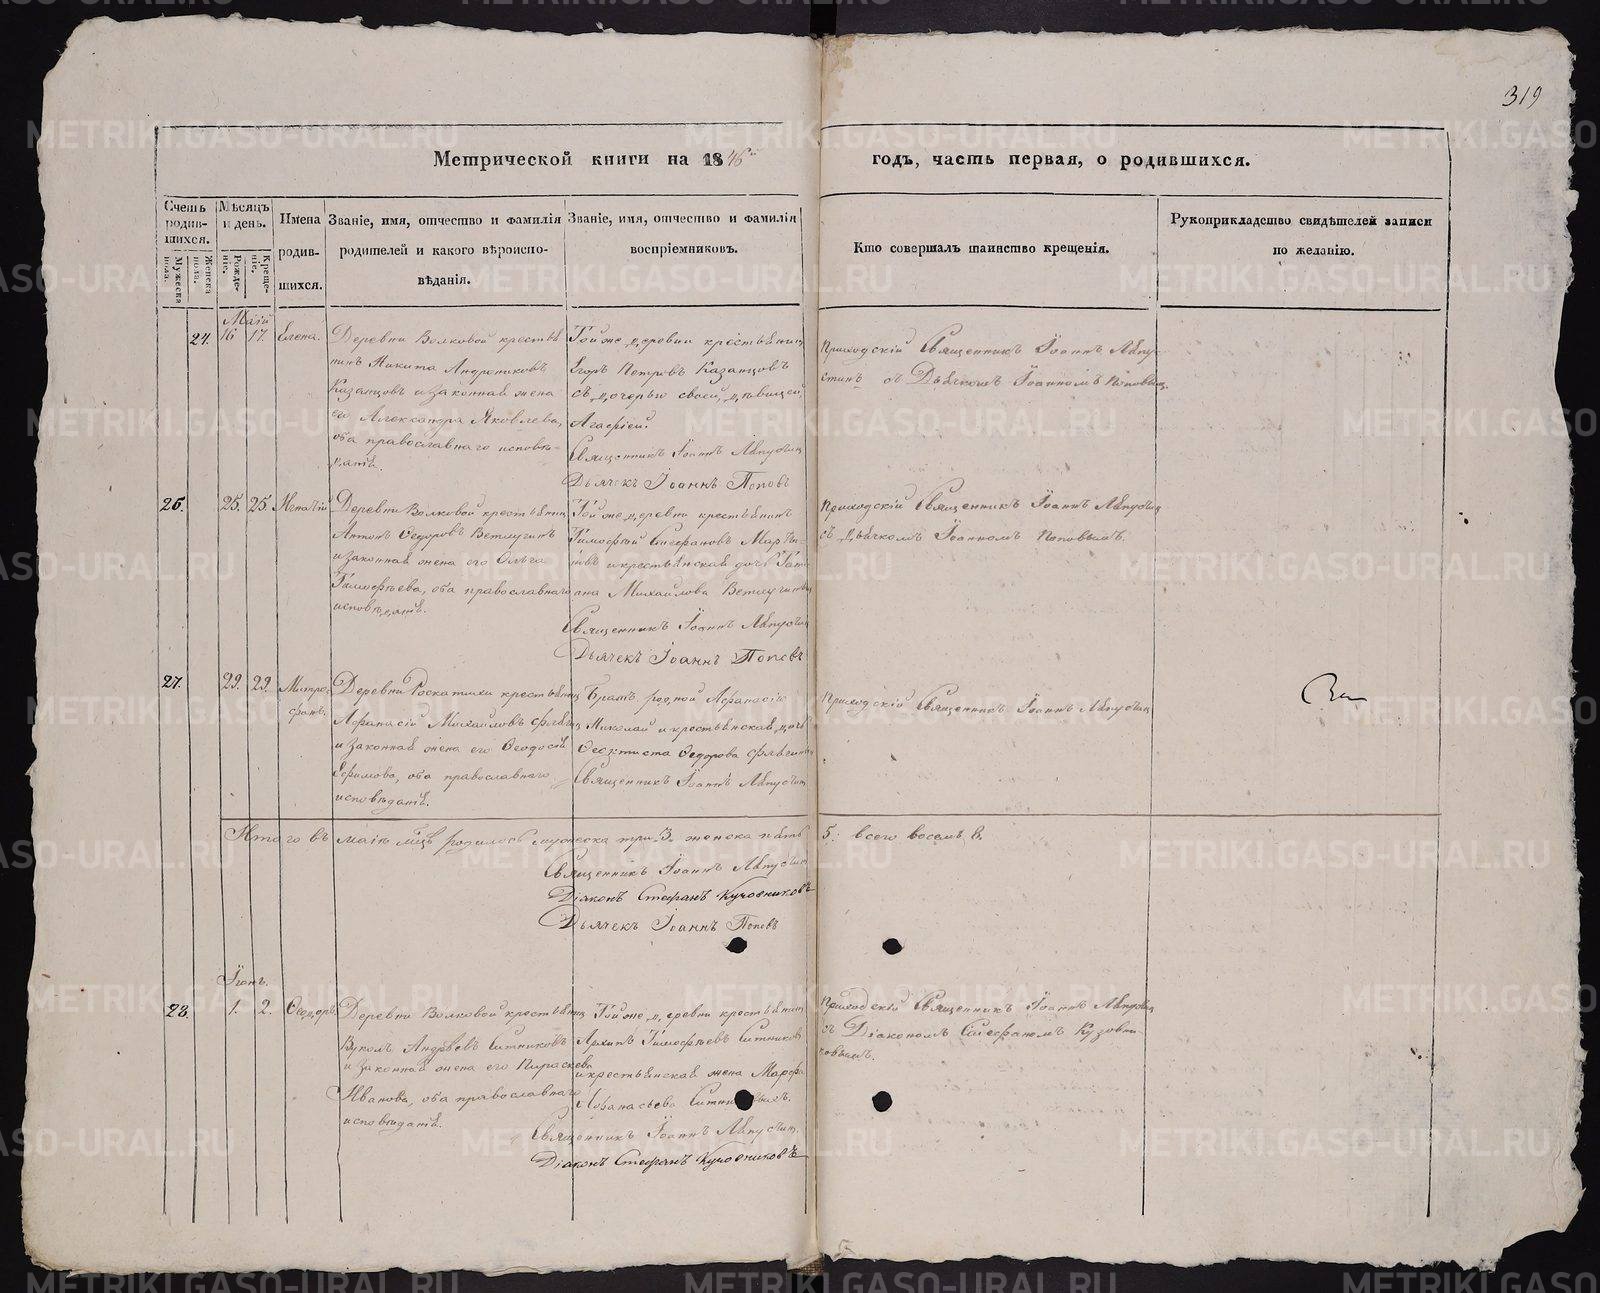 319
Метрической книги на 1846й годъ, часть первая, о родившихся.
Счетъ родив-шихся.
Мужеска пола.
Женска пола.
Мѣсяцъ и день.
Рожде-ніе.
Креще-ніе.
Имена родив-шихся.
Званіе, имя, отчество и фамилія
родителей и какого вѣроиспо-
вѣданія.
Званіе, имя, отчество и фамилія
воспріемниковъ.
Кто совершалъ таинство крещенія.
Рукоприкладство свидѣтелей записи
по желанію.
Маій
24. 16 17. Елена.
Деревни Волковой крестья
нинъ Никита Андрониковъ
Казанцовъ и законная жена
его Александра Яковлева,
оба православнаго исповѣ-
данія.
Той же деревни крестьянин
Егоръ Петровъ Казанцовъ
съ дочерью своей, дѣвицей,
Агафіей.
Священникъ Іоаннъ
Дьячекъ Іоаннъ Поповъ
Приходскій Священникъ Іоаннъ
съ Дьячкомъ Іоанномъ Поповым
26. 25. 25. Игнатій
Деревни Волковой крестьянин
Антонъ Ѳедоровъ Ветлугинъ
и законная жена его Ольга
Тимофѣева, оба православнаго
исповѣданія.
Той же деревни крестьянинъ
Тимофей Стефановъ
и крестьянская дочь
Михайлова Ветлугина
Священникъ Іоаннъ
Дьячекъ Іоаннъ Поповъ
Приходскій Священникъ Іоаннъ
съ Дьячкомъ Іоанномъ Поповымъ.
27. 29. 29. Митро-
фанъ.
Деревни Роскатихи крестьянин
Афанасій Михайловъ
и законная жена его Ѳеодосія
Ефимова, оба православнаго
исповѣданія.
Братъ родной Афанасію
Николай и крестьянская дочь
Ѳеоктиста Ѳедорова
Священникъ Іоаннъ
Приходскій Священникъ Іоаннъ
Итого въ маію мцѣ родилось мужеска три. 3. женска пять 5. всего восемь 8.
Священникъ Іоаннъ
Діаконъ Стефанъ Кузовниковъ
Дьячекъ Іоаннъ Поповъ
Іюнь.
28. 1. 2. Ѳеодоръ.
Деревни Волковой крестьянин
Вуколъ Андреевъ Ситниковъ
и законная жена его Параскева
Иванова, оба православнаго
исповѣданія.
Той же деревни крестьянин
Архипъ Тимофѣевъ Ситников
и крестьянская жена Марфа
Афанасьева
Священникъ Іоаннъ
Діаконъ Стефанъ Кузовниковъ
Приходскій Священникъ Іоаннъ
съ Діакономъ Стефаномъ Кузовни-
ковымъ.